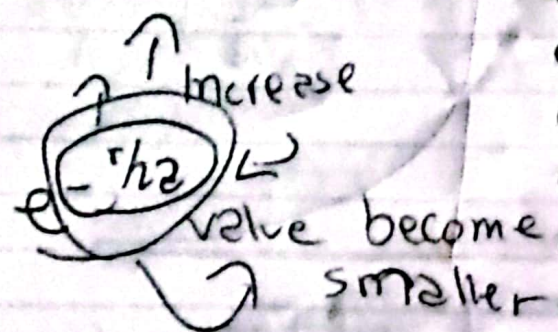 increase
e
value become
smaller